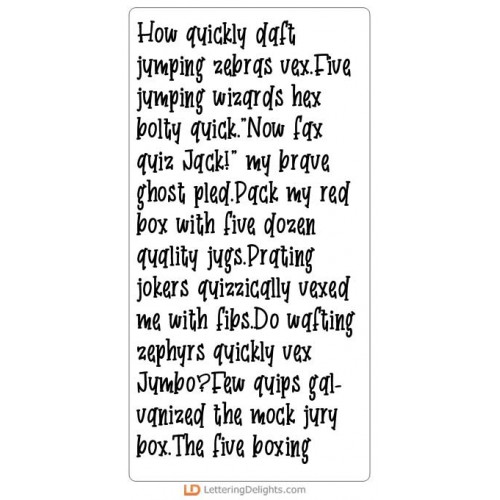 How quickly daft
jumping zebras vex.Five
jumping wizards hex
bolty quick."Now fax
quiz Jack!" my brave
ghost pled.Pack my red
box with five dozen
quality jugs.Prating
jokers quizzically vexed
me with fibs.Do wafting
zephyrs quickly vex
Jumbo?Few quips gal-
vanized the mock jury
box.The five boxing
LD LetteringDelights.com